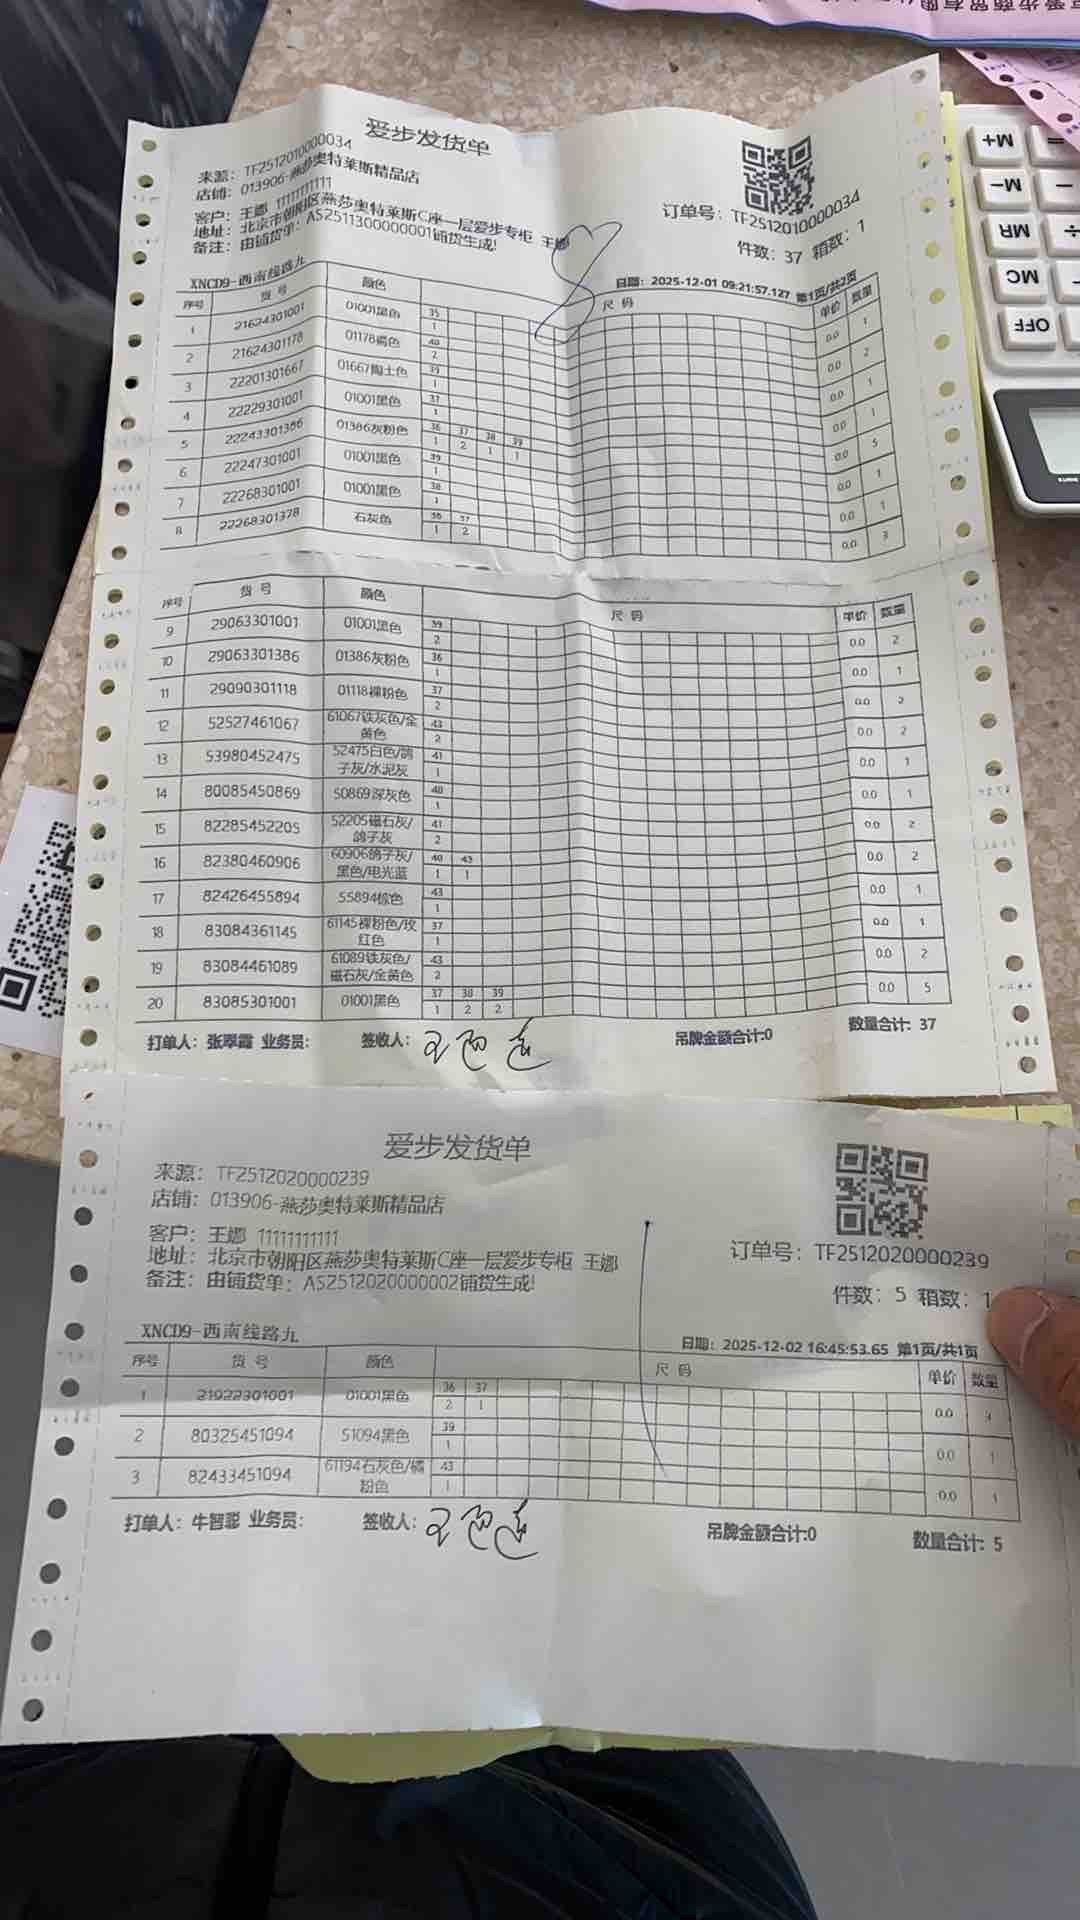 爱步发货单
来源：TF2512010000034
店铺：013906-燕莎奥特莱斯精品店
客户：王娜 11111111111
地址：北京市朝阳区燕莎奥特莱斯C座一层爱步专柜 王娜
备注：由铺货单：AS2511300000001铺货生成!
订单号：TF2512010000034
件数：37 箱数：1
XNCD9-西南线路九
日期：2025-12-01 09:21:57.127 第1页/共2页
序号 货号 颜色 尺码 单价 数量
1 21624301001 01001黑色 35 1 0.0 1
2 21624301178 01178褐色 40 2 0.0 2
3 22201301667 01667陶土色 39 1 0.0 1
4 22229301001 01001黑色 37 1 0.0 1
5 22243301386 01386灰粉色 36 37 38 39 1 2 1 1 0.0 5
6 22247301001 01001黑色 39 1 0.0 1
7 22268301001 01001黑色 38 1 0.0 1
8 22268301378 石灰色 36 37 1 2 0.0 3
序号 货号 颜色 尺码 单价 数量
9 29063301001 01001黑色 39 2 0.0 2
10 29063301386 01386灰粉色 36 1 0.0 1
11 29090301118 01118裸粉色 37 2 0.0 2
12 52527461067 61067铁灰色/金黄色 43 2 0.0 2
13 53980452475 52475白色/鸽子灰/水泥灰 41 1 0.0 1
14 80085450869 50869深灰色 40 1 0.0 1
15 82285452205 52205磁石灰/鸽子灰 41 2 0.0 2
16 82380460906 60906鸽子灰/黑色/电光蓝 40 43 1 1 0.0 2
17 82426455894 55894棕色 43 1 0.0 1
18 83084361145 61145裸粉色/玫红色 37 1 0.0 1
19 83084461089 61089铁灰色/磁石灰/金黄色 43 2 0.0 2
20 83085301001 01001黑色 37 38 39 1 2 2 0.0 5
打单人：张翠霞 业务员： 签收人： 吊牌金额合计:0 数量合计: 37
爱步发货单
来源：TF2512020000239
店铺：013906-燕莎奥特莱斯精品店
客户：王娜 11111111111
地址：北京市朝阳区燕莎奥特莱斯C座一层爱步专柜 王娜
备注：由铺货单：AS2512020000002铺货生成!
订单号：TF2512020000239
件数：5 箱数：1
XNCD9-西南线路九
日期：2025-12-02 16:45:53.65 第1页/共1页
序号 货号 颜色 尺码 单价 数量
1 21922301001 01001黑色 36 37 2 1 0.0 3
2 80325451094 51094黑色 39 1 0.0 1
3 82433451094 61194石灰色/橘粉色 43 1 0.0 1
打单人：牛智聪 业务员： 签收人： 吊牌金额合计:0 数量合计: 5
M+
M-
MR
MC
OFF